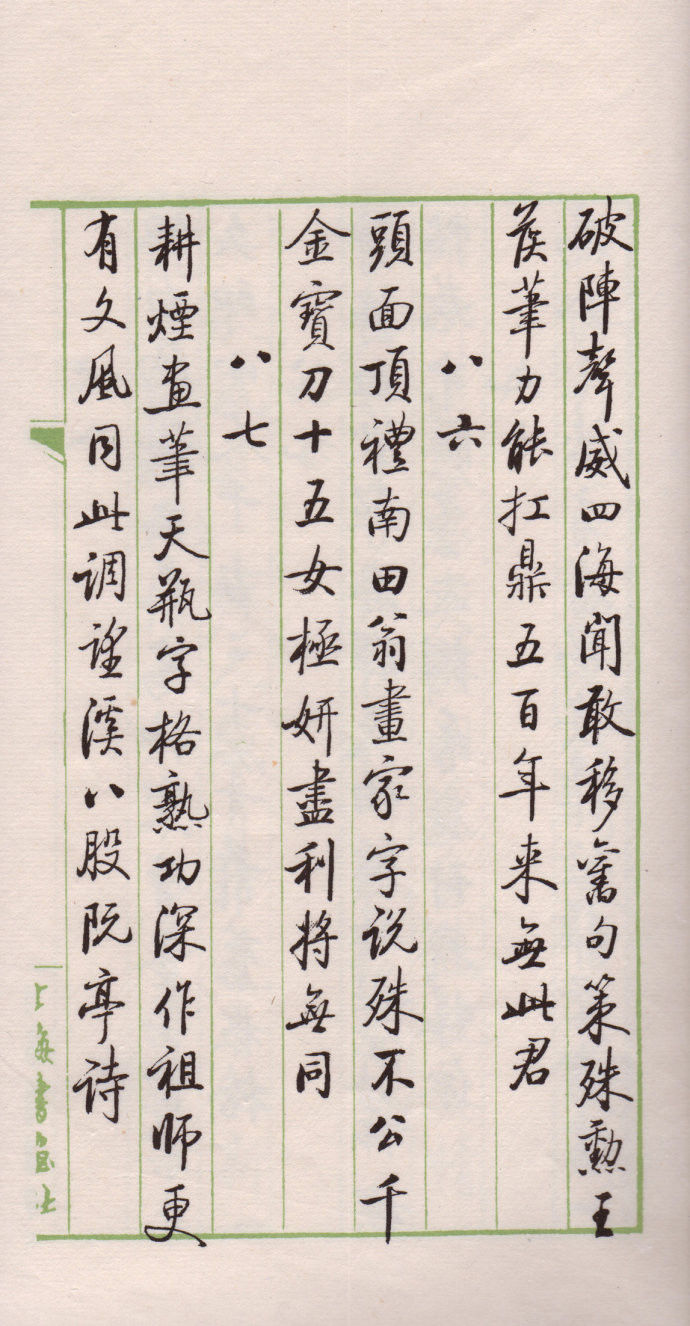 破陣聲威四海聞敢移舊句策殊勳王
侯筆力能扛鼎五百年来無此君
八六
頭面頂禮南田翁畫家字说殊不公千
金寶刀十五女極妍盡利將無同
八七
耕煙畫筆天瓶字格熟功深作祖师更
有文風同此调望溪八股阮亭诗
上海書画社